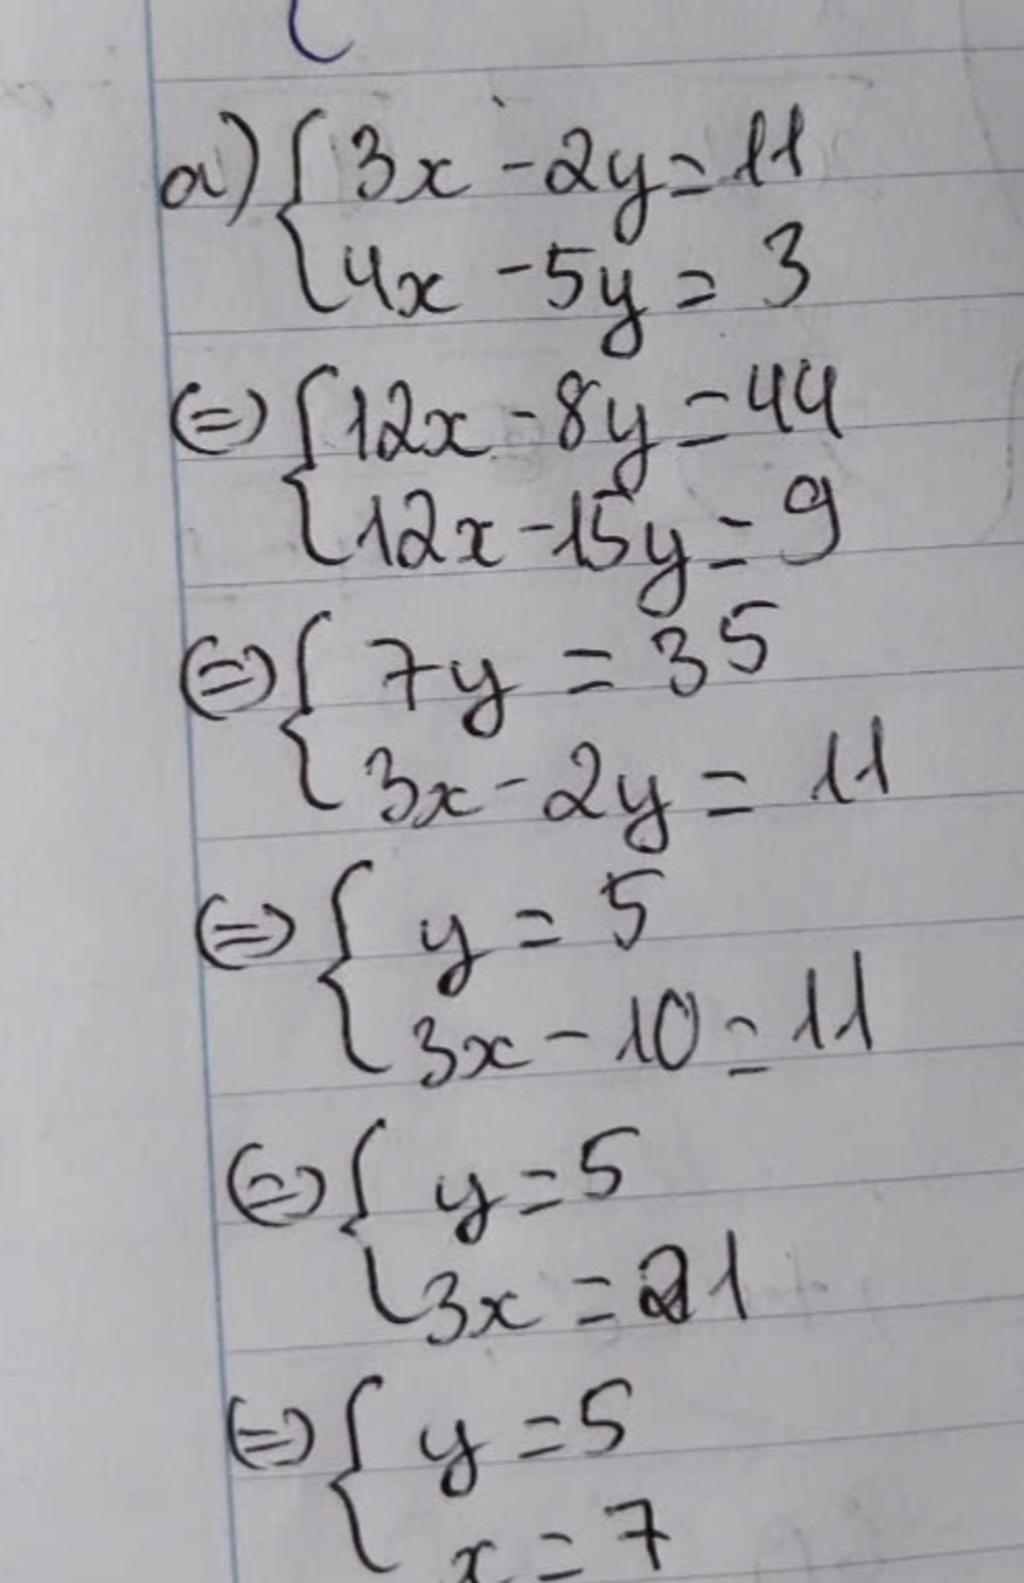 a) { 3x - 2y = 11
4x - 5y = 3
(=) { 12x - 8y = 44
12x - 15y = 9
(=) { 7y = 35
3x - 2y = 11
(=) { y = 5
3x - 10 = 11
(=) { y = 5
3x = 21
(=) { y = 5
x = 7